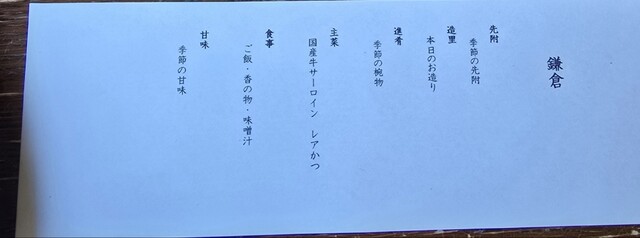 鎌倉
先附
季節の先附
造里
本日のお造り
進肴
季節の椀物
主菜
国産牛サーロイン レアかつ
食事
ご飯・香の物・味噌汁
甘味
季節の甘味